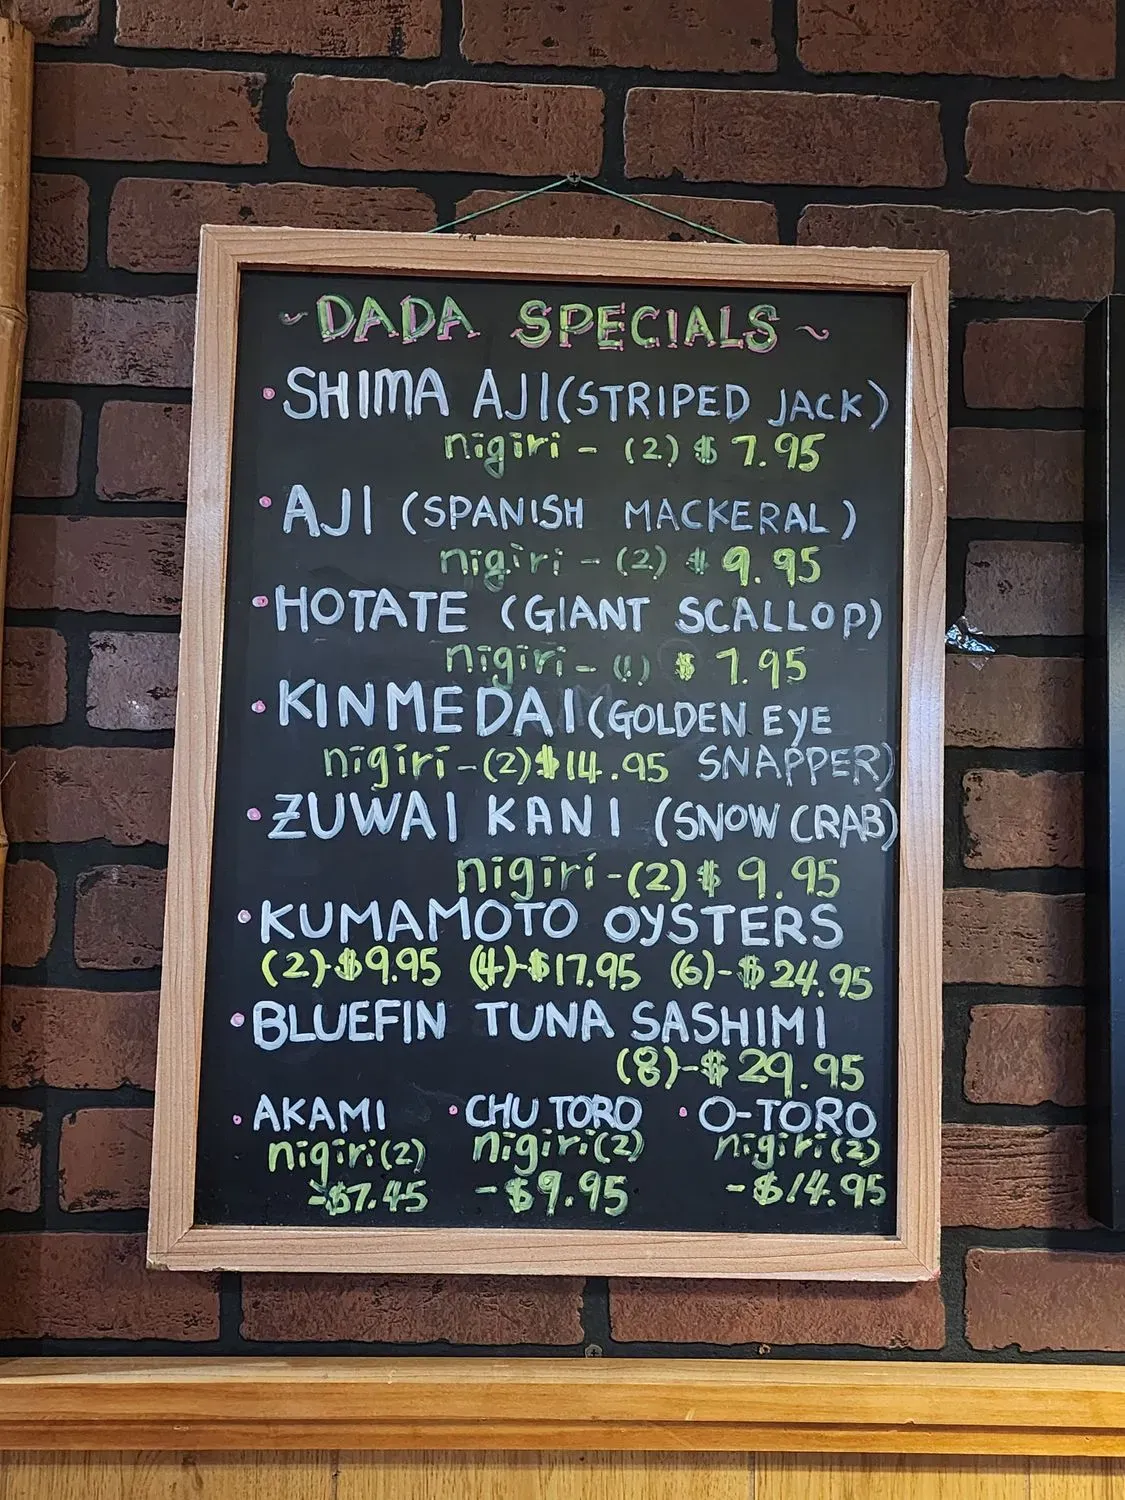 ~DADA SPECIALS~
• SHIMA AJI (STRIPED JACK)
nigiri - (2) $ 7.95
• AJI (SPANISH MACKERAL)
nigiri - (2) $ 9.95
• HOTATE (GIANT SCALLOP)
nigiri - (1) $ 7.95
• KINMEDAI (GOLDEN EYE
nigiri - (2) $14.95 SNAPPER)
• ZUWAI KANI (SNOW CRAB)
nigiri - (2) $ 9.95
• KUMAMOTO OYSTERS
(2)-$9.95 (4)-$17.95 (6)-$24.95
• BLUEFIN TUNA SASHIMI
(8)-$29.95
• AKAMI • CHU TORO • O-TORO
nigiri(2) nigiri(2) nigiri(2)
-$7.45 -$9.95 -$14.95